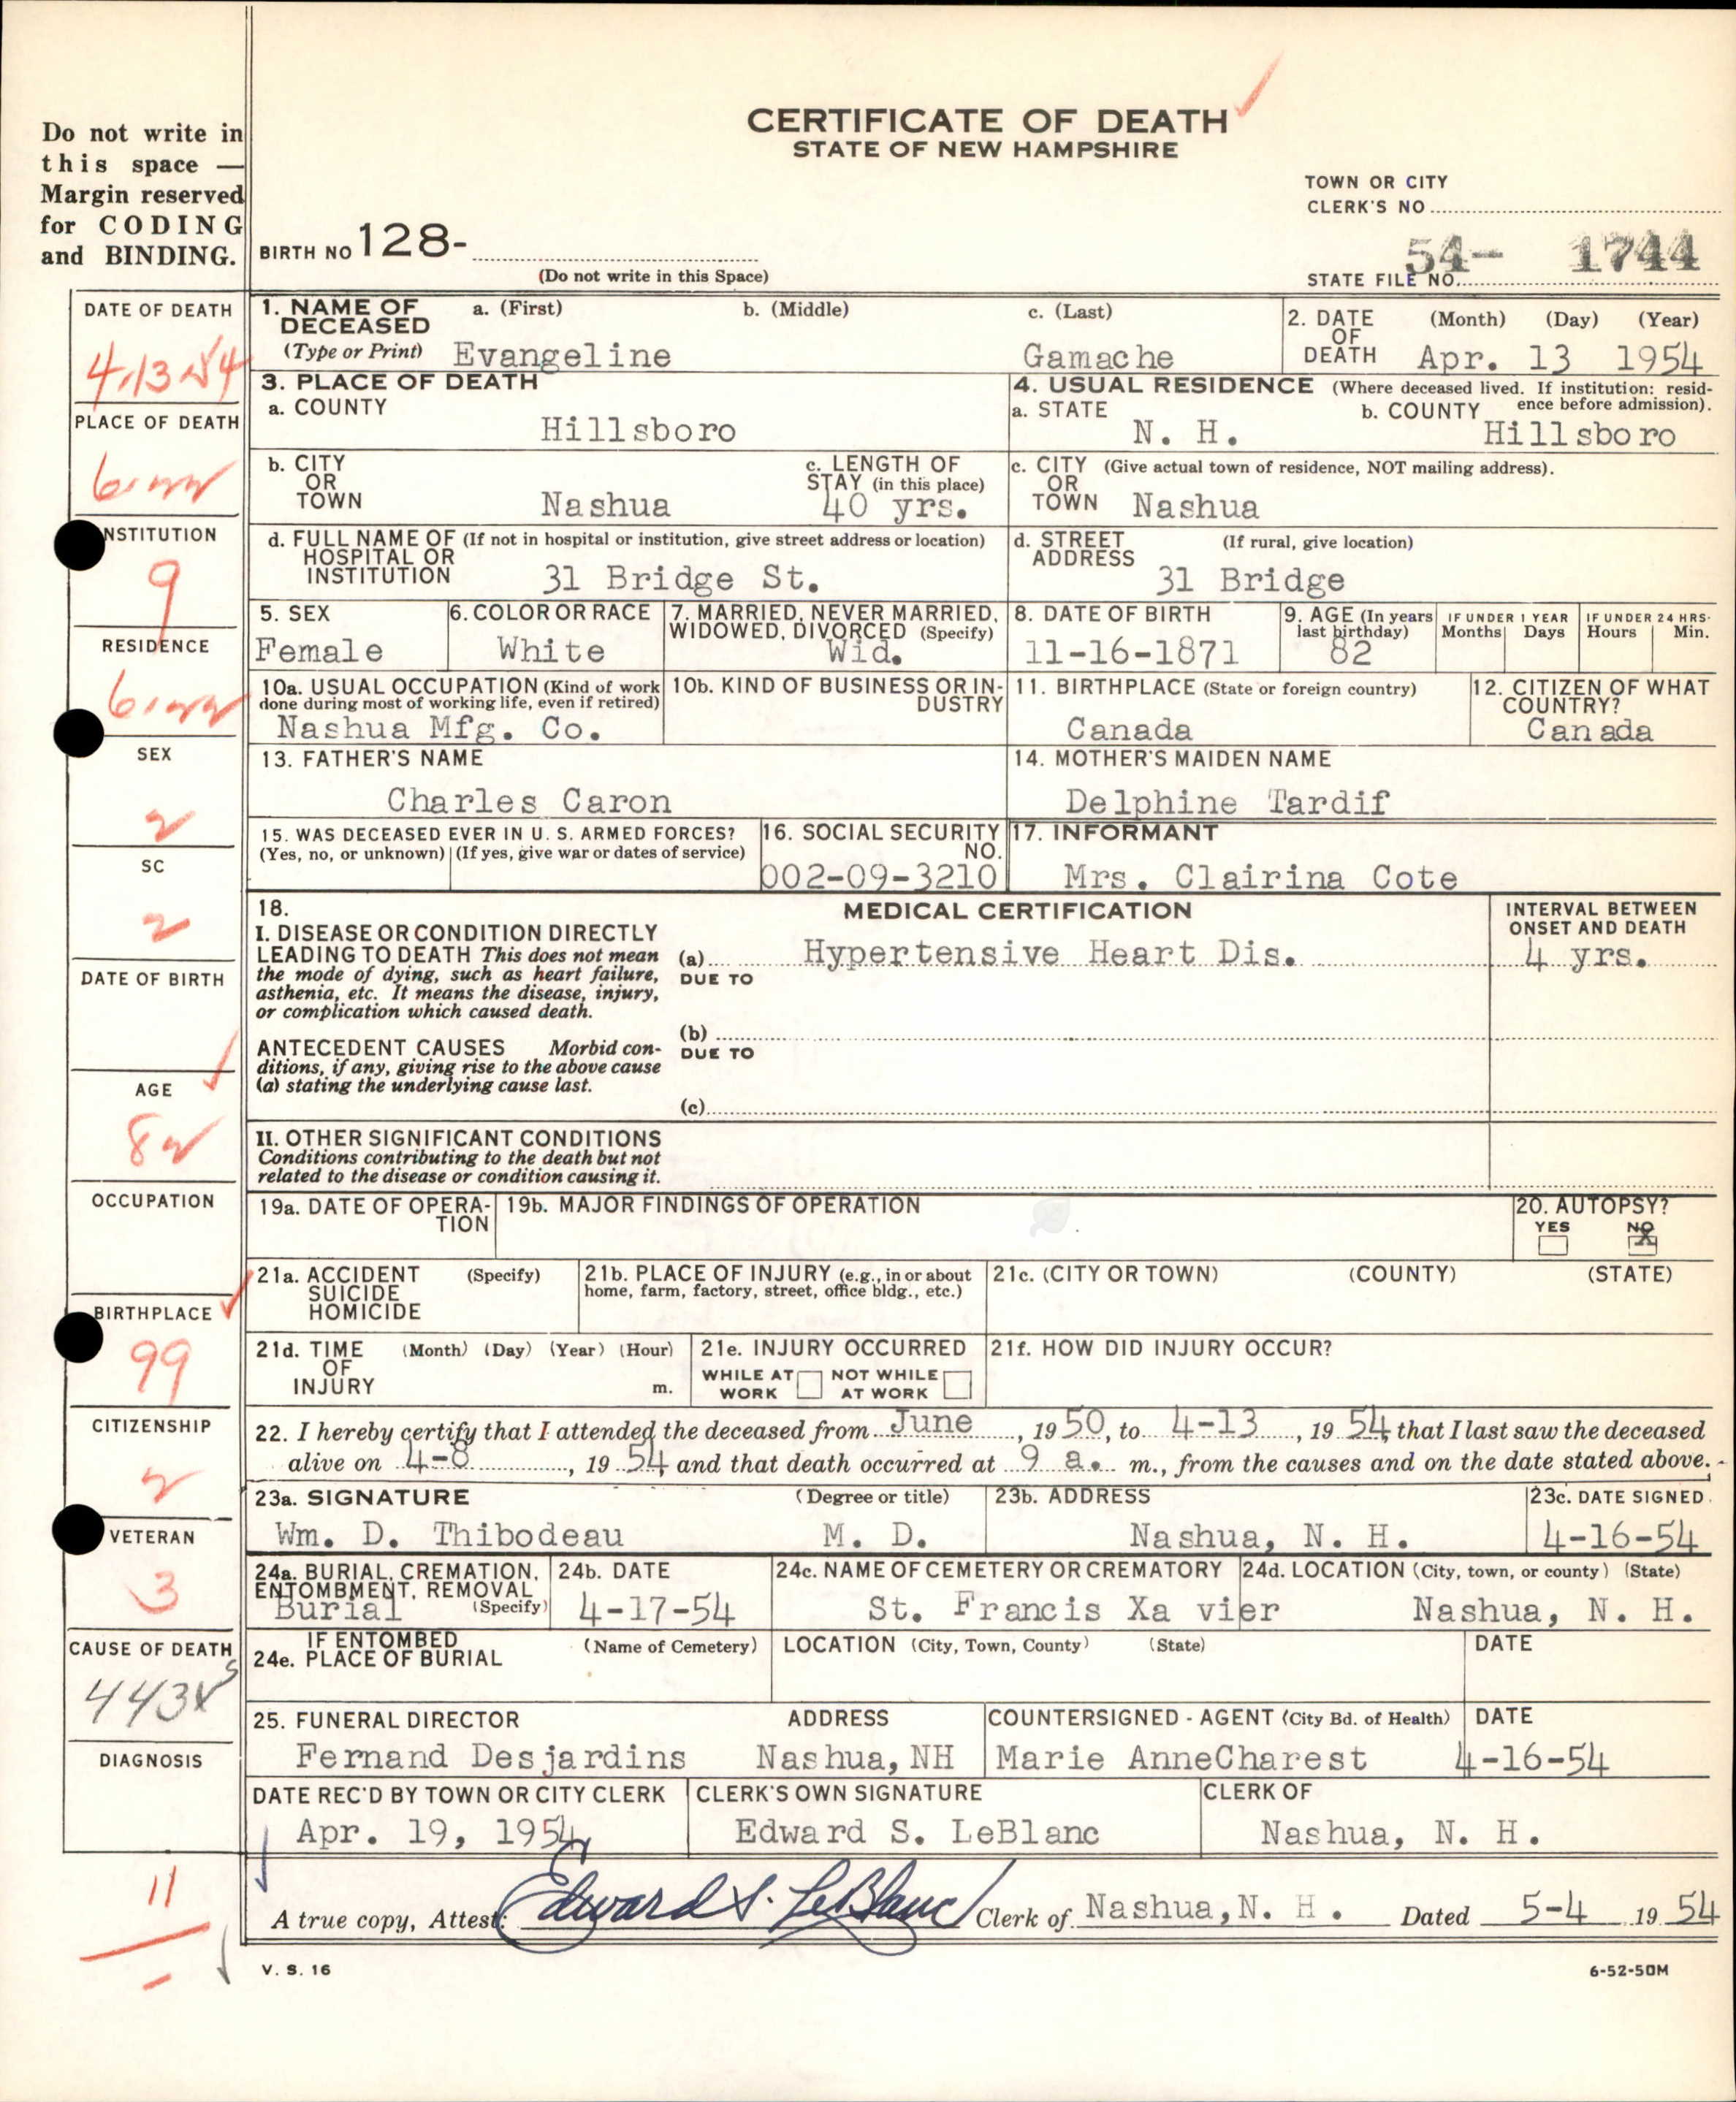 CERTIFICATE OF DEATH
STATE OF NEW HAMPSHIRE
Do not write in
this space —
Margin reserved
for CODING
and BINDING.
TOWN OR CITY
CLERK'S NO
BIRTH NO 128-
(Do not write in this Space)
STATE FILE NO. 54- 1744
DATE OF DEATH
4-13-54
PLACE OF DEATH
INSTITUTION
9
RESIDENCE
SEX
2
SC
2
DATE OF BIRTH
AGE
82
OCCUPATION
BIRTHPLACE
99
CITIZENSHIP
2
VETERAN
3
CAUSE OF DEATH
443X
5
DIAGNOSIS
11
1. NAME OF DECEASED (Type or Print) a. (First) b. (Middle) c. (Last)
Evangeline Gamache
2. DATE OF DEATH (Month) (Day) (Year)
Apr. 13 1954
3. PLACE OF DEATH
a. COUNTY
Hillsboro
4. USUAL RESIDENCE (Where deceased lived. If institution: residence before admission).
a. STATE b. COUNTY
N. H. Hillsboro
b. CITY OR TOWN Nashua
c. LENGTH OF STAY (in this place)
40 yrs.
c. CITY OR TOWN (Give actual town of residence, NOT mailing address).
Nashua
d. FULL NAME OF HOSPITAL OR INSTITUTION (If not in hospital or institution, give street address or location)
31 Bridge St.
d. STREET ADDRESS (If rural, give location)
31 Bridge
5. SEX
Female
6. COLOR OR RACE
White
7. MARRIED, NEVER MARRIED, WIDOWED, DIVORCED (Specify)
Wid.
8. DATE OF BIRTH
11-16-1871
9. AGE (In years last birthday)
82
IF UNDER 1 YEAR
Months Days
IF UNDER 24 HRS.
Hours Min.
10a. USUAL OCCUPATION (Kind of work done during most of working life, even if retired)
Nashua Mfg. Co.
10b. KIND OF BUSINESS OR INDUSTRY
11. BIRTHPLACE (State or foreign country)
Canada
12. CITIZEN OF WHAT COUNTRY?
Canada
13. FATHER'S NAME
Charles Caron
14. MOTHER'S MAIDEN NAME
Delphine Tardif
15. WAS DECEASED EVER IN U. S. ARMED FORCES?
(Yes, no, or unknown) (If yes, give war or dates of service)
16. SOCIAL SECURITY NO.
002-09-3210
17. INFORMANT
Mrs. Clairina Cote
18. MEDICAL CERTIFICATION
INTERVAL BETWEEN ONSET AND DEATH
I. DISEASE OR CONDITION DIRECTLY
LEADING TO DEATH This does not mean
the mode of dying, such as heart failure,
asthenia, etc. It means the disease, injury,
or complication which caused death.
(a) Hypertensive Heart Dis. 4 yrs.
DUE TO
(b)
ANTECEDENT CAUSES Morbid con-
ditions, if any, giving rise to the above cause
(a) stating the underlying cause last.
DUE TO
(c)
II. OTHER SIGNIFICANT CONDITIONS
Conditions contributing to the death but not
related to the disease or condition causing it.
19a. DATE OF OPERATION
19b. MAJOR FINDINGS OF OPERATION
20. AUTOPSY?
YES NO
X
21a. ACCIDENT SUICIDE HOMICIDE (Specify)
21b. PLACE OF INJURY (e.g., in or about home, farm, factory, street, office bldg., etc.)
21c. (CITY OR TOWN) (COUNTY) (STATE)
21d. TIME OF INJURY (Month) (Day) (Year) (Hour) m.
21e. INJURY OCCURRED
WHILE AT WORK NOT WHILE AT WORK
21f. HOW DID INJURY OCCUR?
22. I hereby certify that I attended the deceased from June, 1950, to 4-13, 1954, that I last saw the deceased
alive on 4-8, 1954, and that death occurred at 9 a. m., from the causes and on the date stated above.
23a. SIGNATURE (Degree or title)
Wm. D. Thibodeau M. D.
23b. ADDRESS
Nashua, N. H.
23c. DATE SIGNED
4-16-54
24a. BURIAL, CREMATION, ENTOMBMENT, REMOVAL (Specify)
Burial
24b. DATE
4-17-54
24c. NAME OF CEMETERY OR CREMATORY
St. Francis Xa vier
24d. LOCATION (City, town, or county) (State)
Nashua, N. H.
24e. IF ENTOMBED PLACE OF BURIAL (Name of Cemetery) LOCATION (City, Town, County) (State) DATE
25. FUNERAL DIRECTOR ADDRESS
Fernand Desjardins Nashua, NH
COUNTERSIGNED - AGENT (City Bd. of Health) DATE
Marie AnneCharest 4-16-54
DATE REC'D BY TOWN OR CITY CLERK
Apr. 19, 1954
CLERK'S OWN SIGNATURE
Edward S. LeBlanc
CLERK OF
Nashua, N. H.
A true copy, Attest: Edward S. LeBlanc Clerk of Nashua, N. H. Dated 5-4 1954
V. S. 16
6-52-50M